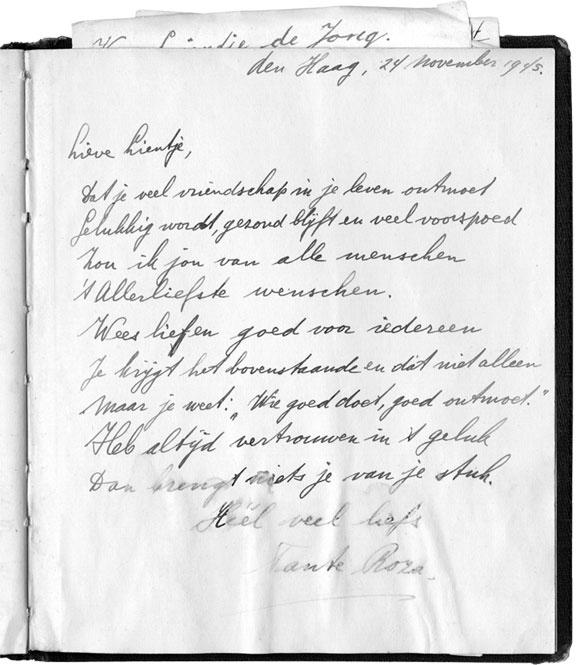 de Jong.
den Haag, 24 November 1945.
Lieve Lientje,
Dat je veel vriendschap in je leven ontmoet
Gelukkig wordt, gezond blijft en veel voorspoed
Zou ik jou van alle menschen
't Allerliefste wenschen.
Wees lief en goed voor iedereen
Je krijgt het bovenstaande en dat niet alleen
Maar je weet: "Wie goed doet, goed ontmoet."
Heb altijd vertrouwen in 't geluk
Dan brengt niets je van je stuk.
Héél veel liefs
Tante Roza.